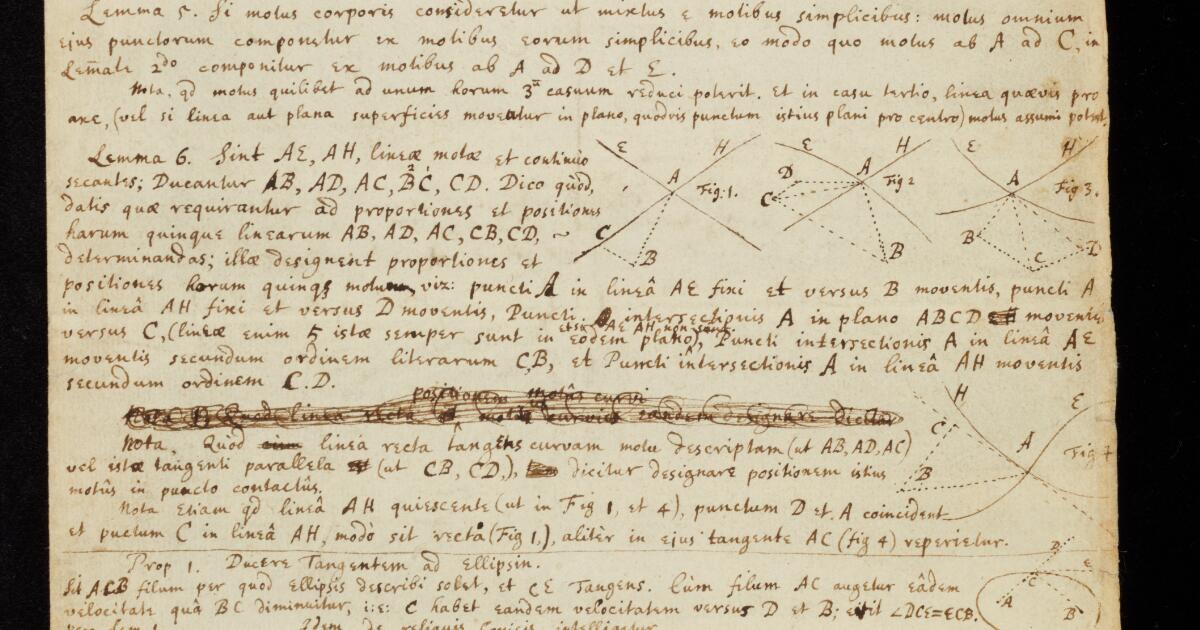 Lemma 5. Si motus corporis consideretur ut mixtus e motibus simplicibus: motus omnium
ejus punctorum componetur ex motibus eorum simplicibus, eo modo quo motus ab A ad C, in
Lem̄ate 2do componitur ex motibus ab A ad D et E.
Nota, qd motus quilibet ad unum horum 3m casuum reduci poterit. Et in casu tertio, linea quævis pro
axe, (vel si linea aut plana superficies moveatur in plano, quodvis punctum istius plani pro centro) motus assumi potest.
Lemma 6. Sint AE, AH, lineæ motæ et continuò
secantes; Ducantur AB, AD, AC, BC, CD. Dico quòd,
datis quæ requirantur ad proportiones et positiones
harum quinque linearum AB, AD, AC, CB, CD, ~
determinandas; illæ designent proportiones et
positiones horum quinqꝫ motuum, viz: puncti A in lineâ AE fixi et versus B moventis, puncti A
in lineâ AH fixi et versus D moventis, Puncti intersectionis A in plano ABCD moventis
versus C, (lineæ enim 5 istæ semper sunt in eodem plano, etsi AE AH non sunt), Puncti intersectionis A in lineâ AE
moventis secundum ordinem literarum CB, et Puncti intersectionis A in lineâ AH moventis
secundum ordinem C.D.
E H A Fig: 1. C B
E H D A Fig 2 C B
E H A Fig 3. B C D
positionem motûs curvi
linea recta
eandem designare dicitur
Nota, Quòd linea recta tangens curvam motu descriptam (ut AB, AD, AC)
vel istæ tangenti parallela (ut CB, CD,), dicitur designare positionem istius
motûs in puncto contactûs.
Nota Etiam qd lineâ AH quiescente (ut in Fig 1, et 4), punctum D et A coincident
et puctum C in lineâ AH, modò sit recta (Fig 1,), aliter in ejus tangente AC (fig 4) reperietur.
H E C A Fig B
Prop 1. Ducere Tangentem ad Ellipsin.
Sit ACB filum per quod Ellipsis describi solet, et CE Tangens. Cùm filum AC augetur eâdem
velocitate quâ BC diminuitur, i:e: C habet eandem velocitatem versus D et B; erit ∠DCE=ECB.
D E C A B
Idem de reliquis Conicis intelligatur